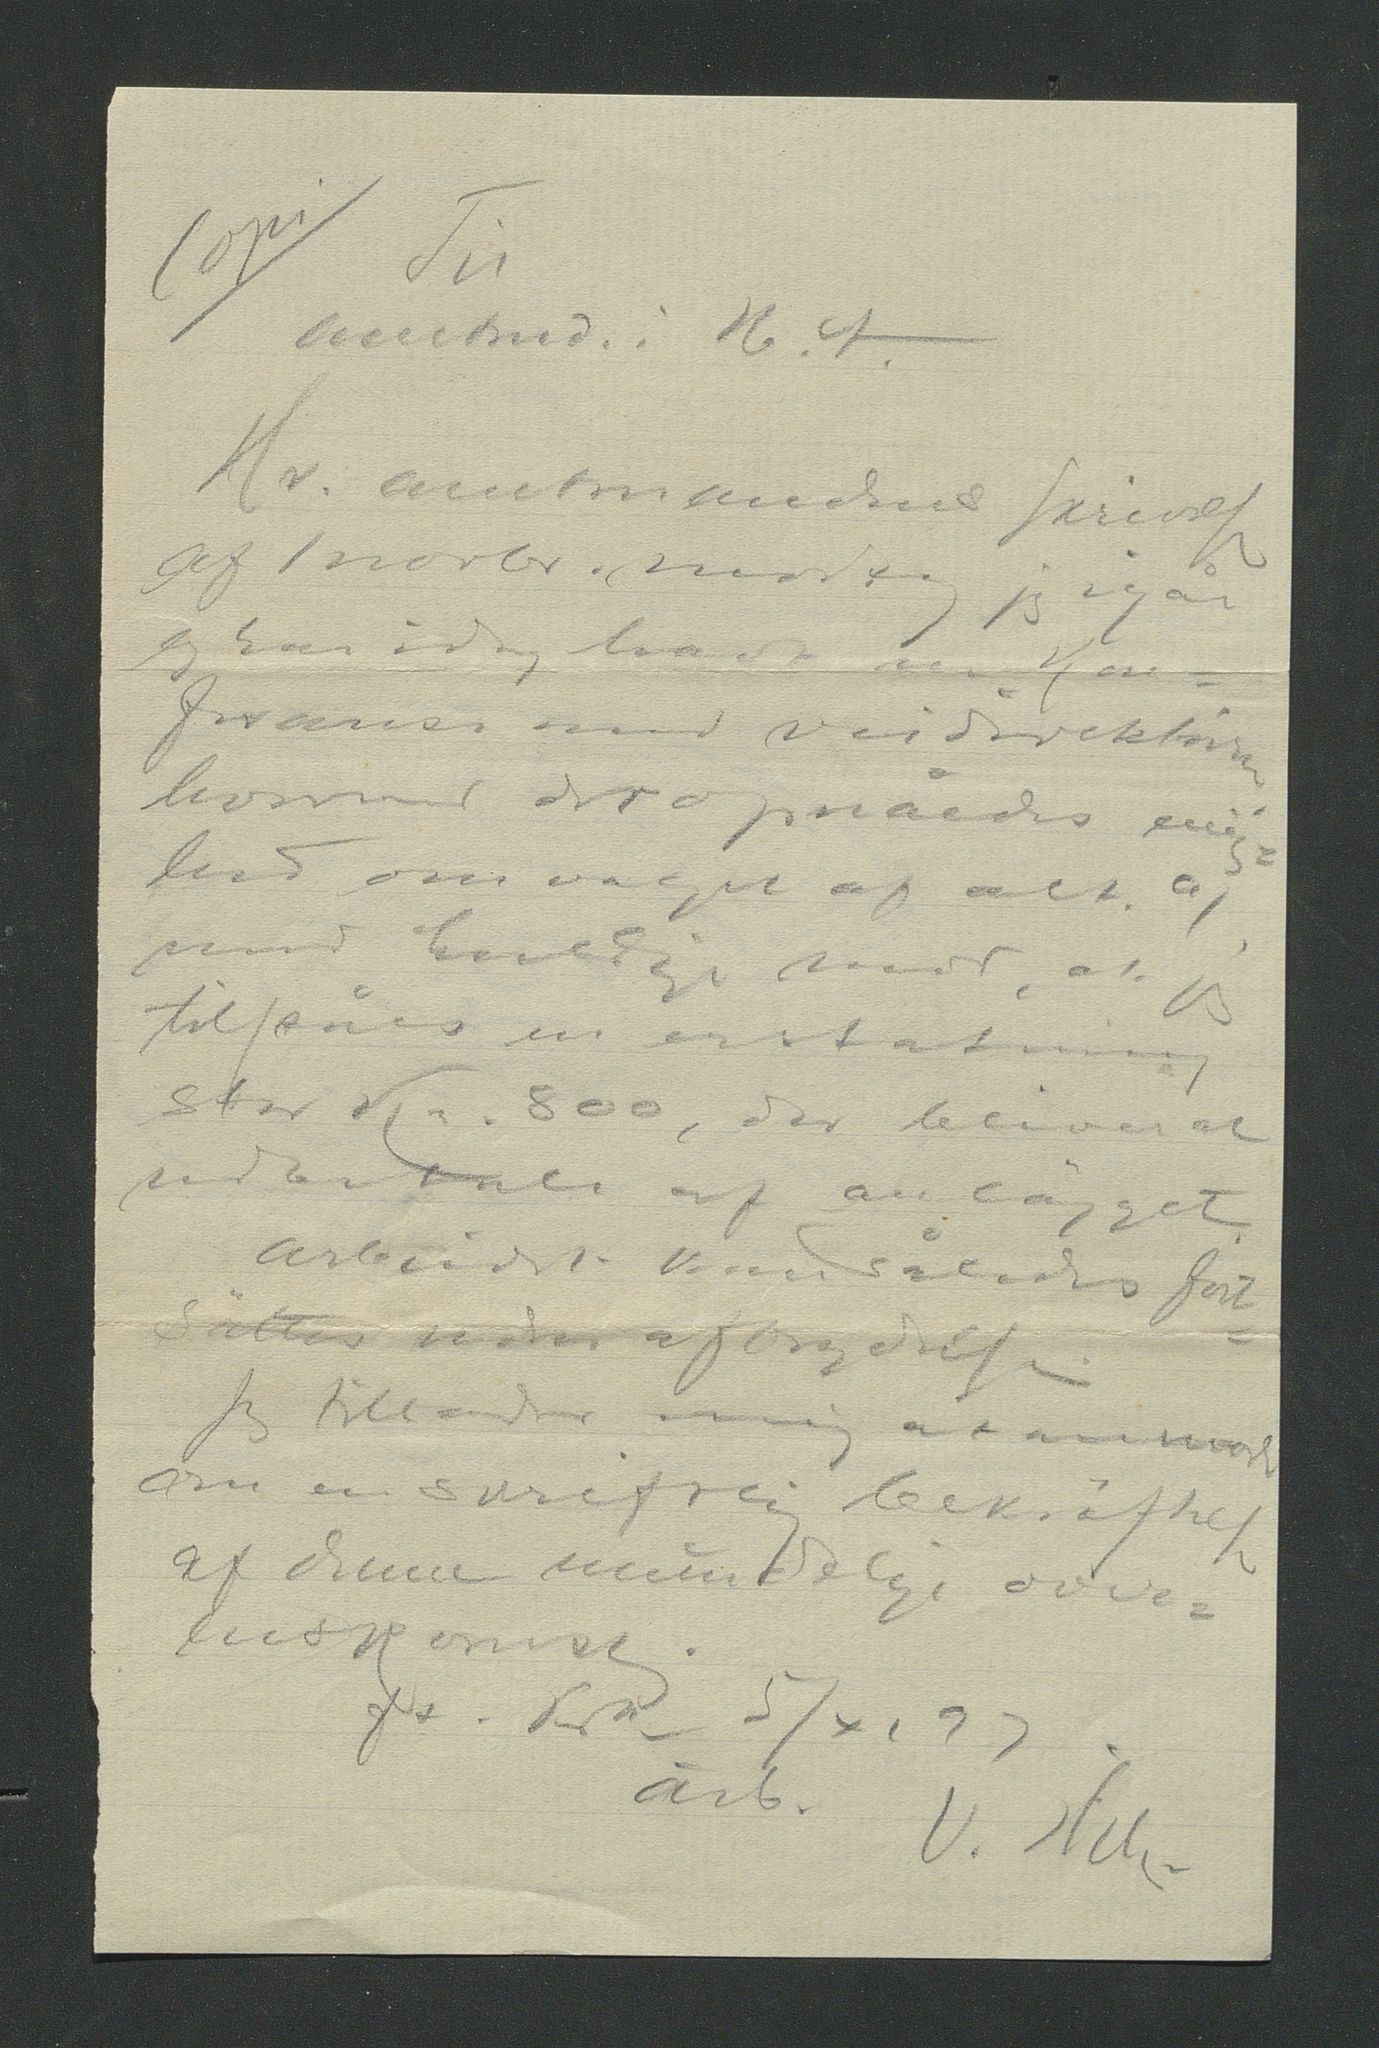 Copi
Til
amtmd. i H. A.
Hr. amtmandens skrivelse
af 1 novbr. modtog jeg igår
og har idag havt en kon=
feranse med veidirektören
hvorved det opnåedes enig=
hed om valget af alt. a,
med
tilståes en erstatning
stor Kr. 800, der bliver at
udbetale af anlägget.
Arbeidet kan således fort=
sättes uden afbrydelse.
Jeg tillader mig at anmode
om en skriftlig bekräftelse
af denne mundtlige over=
enskomst.
p.t. Kra 5/XI 97
ärb.
V.